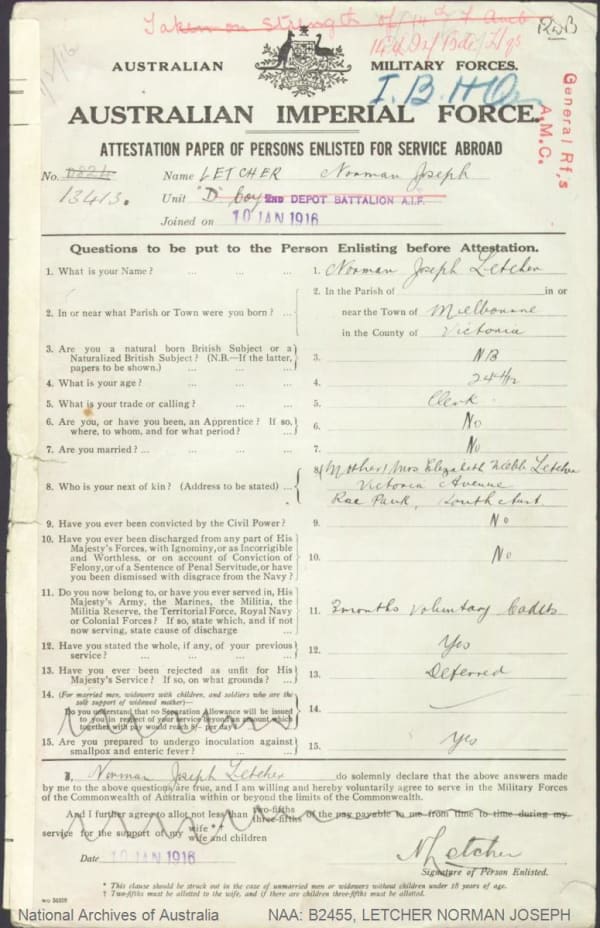 Taken on Strength of 14th F Amb
14th Inf Bde H/qs
AUSTRALIAN MILITARY FORCES.
I.B.H.Qrs
AUSTRALIAN IMPERIAL FORCE.
General Rf,s
A.M.C.
ATTESTATION PAPER OF PERSONS ENLISTED FOR SERVICE ABROAD
No. 13413. Name LETCHER Norman Joseph
Unit "D" Coy 2ND DEPOT BATTALION A.I.F.
Joined on 10 JAN 1916
Questions to be put to the Person Enlisting before Attestation.
1. What is your Name? ... ... ... 1. Norman Joseph Letcher
2. In or near what Parish or Town were you born? ... 2. In the Parish of in or
near the Town of Melbourne
in the County of Victoria
3. Are you a natural born British Subject or a
Naturalized British Subject? (N.B.—If the latter,
papers to be shown.) ... ... 3. NB
4. What is your age? ... ... ... 4. 24 4/12
5. What is your trade or calling? ... ... 5. Clerk
6. Are you, or have you been, an Apprentice? If so,
where, to whom, and for what period? ... 6. No
7. Are you married? ... ... ... 7. No
8. Who is your next of kin? (Address to be stated) ... 8. Mother! Mrs Elizabeth Webb Letcher
Victoria Avenue
Rae Park, South Aust
9. Have you ever been convicted by the Civil Power? 9. No
10. Have you ever been discharged from any part of His
Majesty's Forces, with Ignominy, or as Incorrigible
and Worthless, or on account of Conviction of
Felony, or of a Sentence of Penal Servitude, or have
you been dismissed with disgrace from the Navy? 10. No
11. Do you now belong to, or have you ever served in, His
Majesty's Army, the Marines, the Militia, the
Militia Reserve, the Territorial Force, Royal Navy
or Colonial Forces? If so, state which, and if not
now serving, state cause of discharge ... 11. 3 months Voluntary Cadets
12. Have you stated the whole, if any, of your previous
service? ... ... ... 12. Yes
13. Have you ever been rejected as unfit for His
Majesty's Service? If so, on what grounds? ... 13. Deferred
14. (For married men, widowers with children, and soldiers who are the
sole support of widowed mother)—
Do you understand that no Separation Allowance will be issued
to you in respect of your service beyond an amount which
together with pay would reach 8/- per day? 14. —
15. Are you prepared to undergo inoculation against
smallpox and enteric fever? ... ... 15. Yes
I, Norman Joseph Letcher do solemnly declare that the above answers made
by me to the above questions are true, and I am willing and hereby voluntarily agree to serve in the Military Forces
of the Commonwealth of Australia within or beyond the limits of the Commonwealth.
And I further agree to allot not less than two-fifths three-fifths of the pay payable to me from time to time during my
service for the support of my wife * † wife and children
Date 10 JAN 1916 N Letcher
Signature of Person Enlisted.
* This clause should be struck out in the case of unmarried men or widowers without children under 18 years of age.
† Two-fifths must be allotted to the wife, and if there are children three-fifths must be allotted.
National Archives of Australia NAA: B2455, LETCHER NORMAN JOSEPH